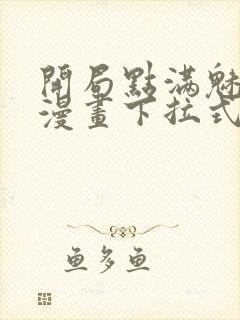 開局點滿魅
漫畫下拉式
魚多魚